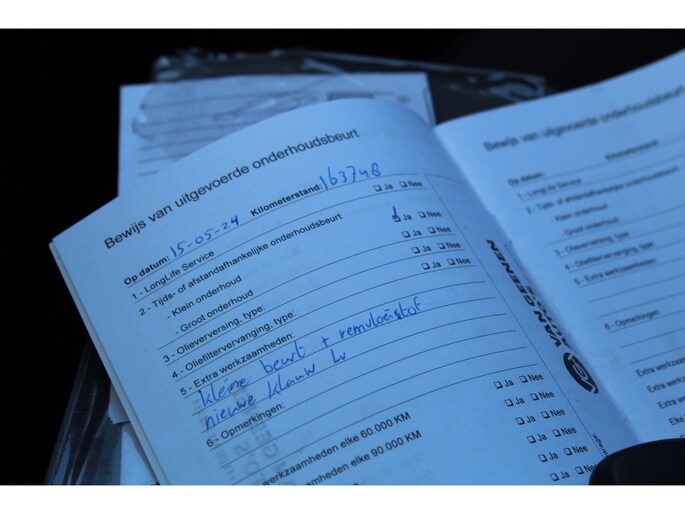 Bewijs van uitgevoerde onderhoudsbeurt
Op datum: 15-05-24 Kilometerstand: 163748
1 - LongLife Service Ja Nee
2 - Tijds- of afstandafhankelijke onderhoudsbeurt
- Klein onderhoud Ja Nee
- Groot onderhoud Ja Nee
3 - Olieverversing, type: Ja Nee
4 - Oliefiltervervanging, type:
5 - Extra werkzaamheden:
kleine beurt + remvloeistof
nieuwe klauw Lv
6 - Opmerkingen:
Ja Nee
Ja Nee
werkzaamheden elke 60.000 KM Ja Nee
werkzaamheden elke 90.000 KM Ja Nee
Ja Nee
VAN GEENEN
Bewijs van uitgevoerde onderhoudsbeurt
Op datum: Kilometerstand:
1 - LongLife Service
2 - Tijds- of afstandafhankelijke onderhoudsbeurt
- Klein onderhoud
- Groot onderhoud
3 - Olieverversing, type:
4 - Oliefiltervervanging, type:
5 - Extra werkzaamheden:
6 - Opmerkingen:
Extra werkzaamheden
Extra werkzaamheden
Extra werkzaam
Extra werk
Extra